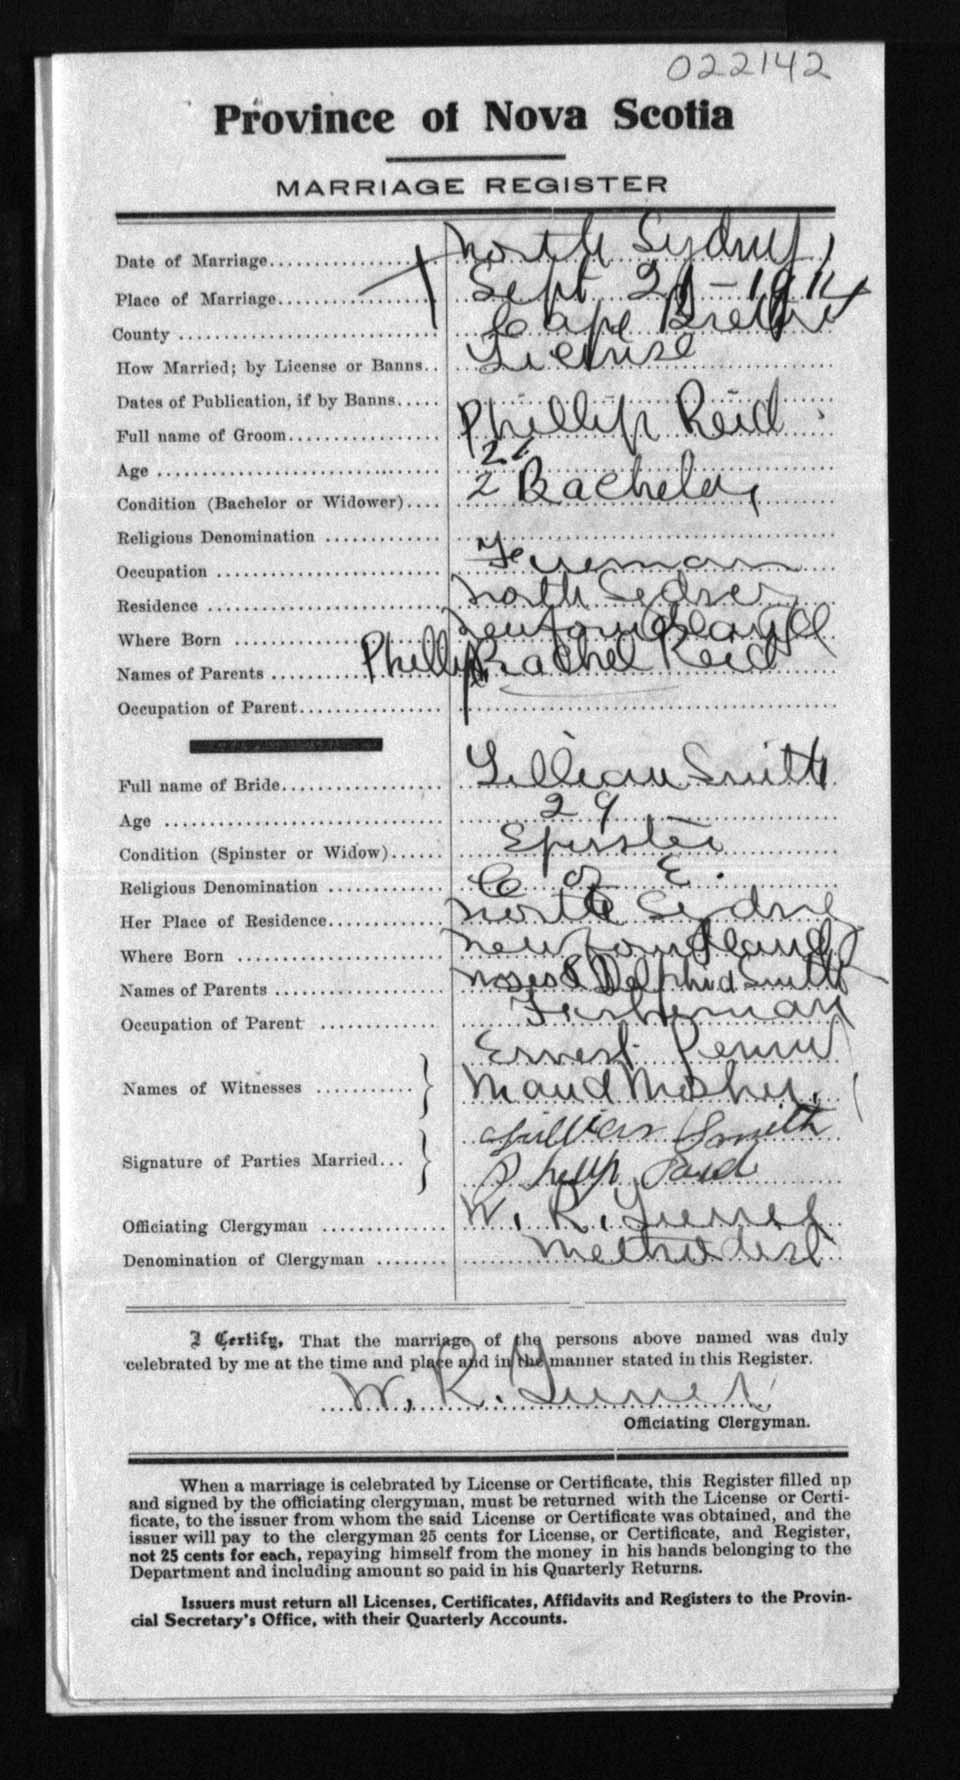 022142
Province of Nova Scotia
MARRIAGE REGISTER
Date of Marriage North Sydney,
Place of Marriage Sept 21 - 1914
County Cape Breton
How Married; by License or Banns License
Dates of Publication, if by Banns
Full name of Groom Phillip Reid
Age 22
Condition (Bachelor or Widower) Bachelor
Religious Denomination
Occupation Fireman
Residence North Sydney
Where Born Newfoundland
Names of Parents Phillip & Rachel Reid
Occupation of Parent
Full name of Bride Lillian Smith
Age 29
Condition (Spinster or Widow) Spinster
Religious Denomination C of E.
Her Place of Residence North Sydney
Where Born Newfoundland
Names of Parents Moses & Delphid Smith
Occupation of Parent Fisherman
Ernest Penny
Names of Witnesses Maud Mosher
Lillian Smith
Signature of Parties Married Phillip Raid
Officiating Clergyman W. R. Turner
Denomination of Clergyman Methodist
I Certify, That the marriage of the persons above named was duly
celebrated by me at the time and place and in the manner stated in this Register.
W. R. Turner
Officiating Clergyman.
When a marriage is celebrated by License or Certificate, this Register filled up
and signed by the officiating clergyman, must be returned with the License or Certi-
ficate, to the issuer from whom the said License or Certificate was obtained, and the
issuer will pay to the clergyman 25 cents for License, or Certificate, and Register,
not 25 cents for each, repaying himself from the money in his hands belonging to the
Department and including amount so paid in his Quarterly Returns.
Issuers must return all Licenses, Certificates, Affidavits and Registers to the Provin-
cial Secretary's Office, with their Quarterly Accounts.